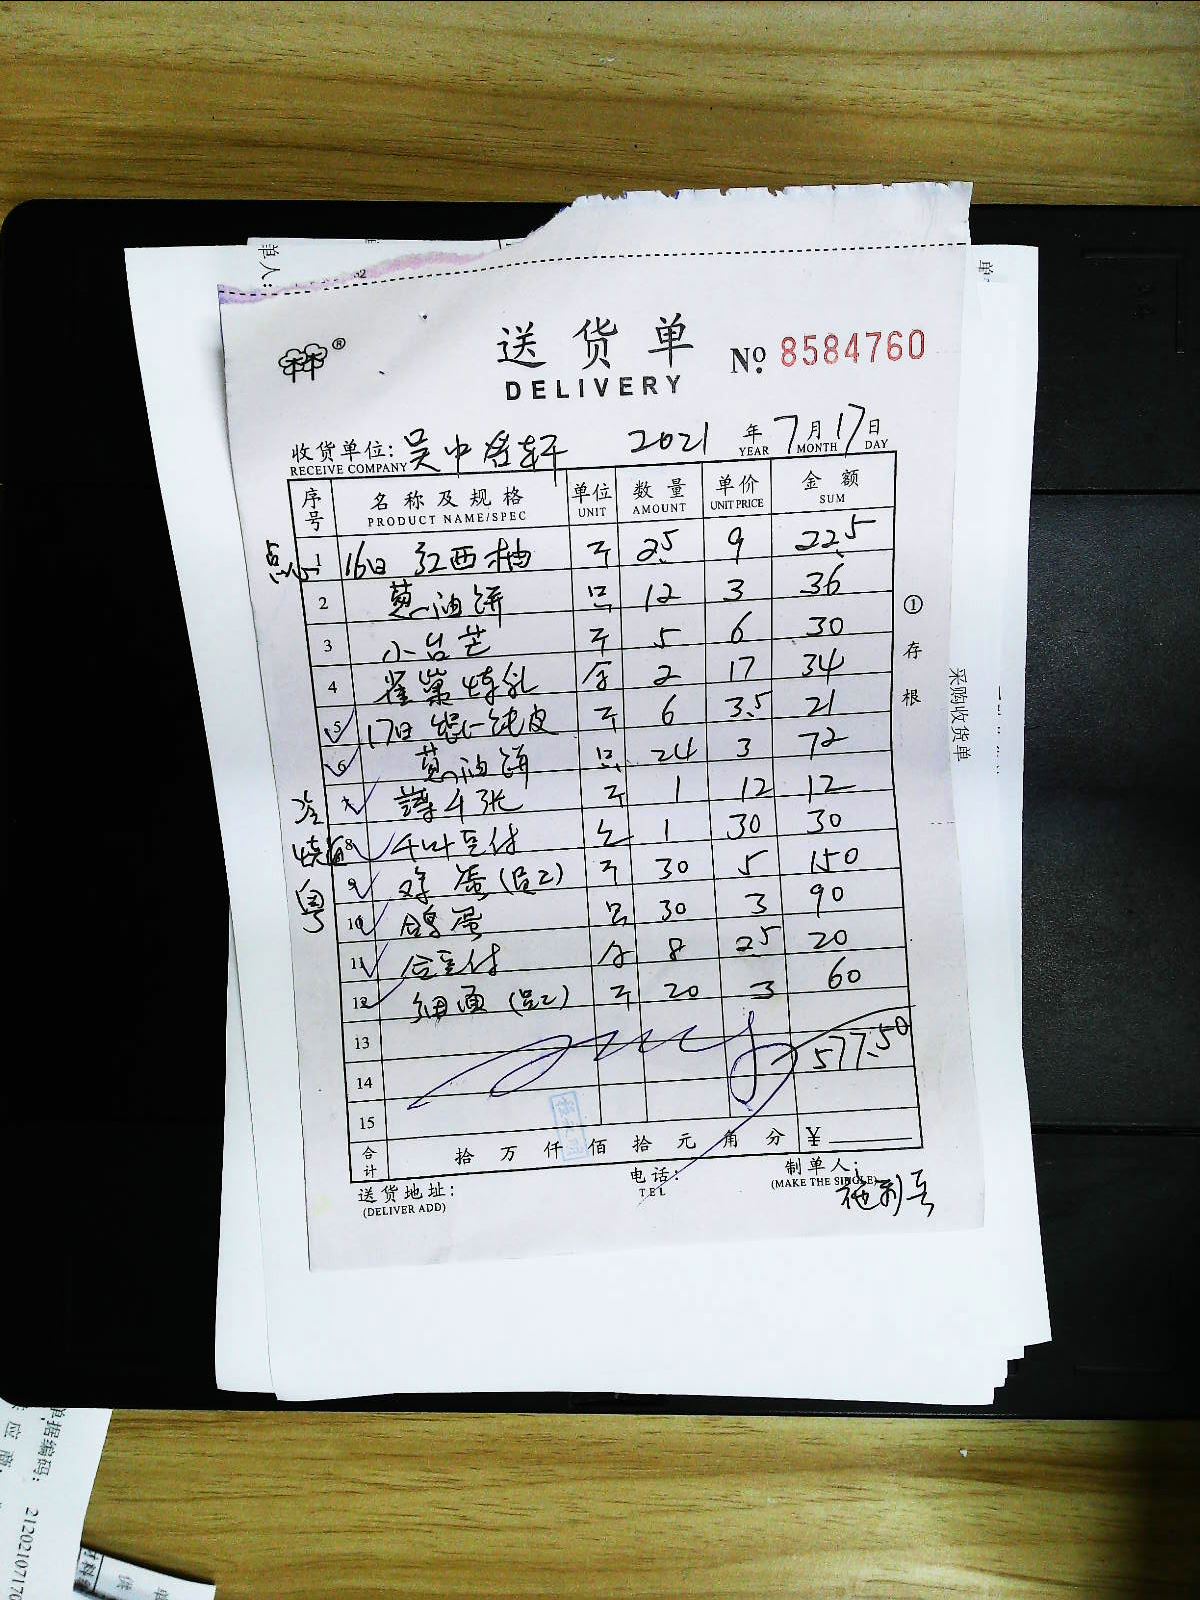 单人:
单
送货单
DELIVERY
No. 8584760
收货单位: 吴中 轩 2021 年 7 月 17 日
RECEIVE COMPANY YEAR MONTH DAY
序号 名称及规格 单位 数量 单价 金额
PRODUCT NAME/SPEC UNIT AMOUNT UNIT PRICE SUM
点心 1 16日 红西柚 斤 2.5 9 22.5
2 葱油饼 只 12 3 36
3 小台芒 斤 5 6 30
4 雀巢炼乳 2 17 34
5 17日 馄饨皮 斤 6 3.5 21
6 葱油饼 只 24 3 72
冷 7 薄千张 斤 1 12 12
烧 8 千叶豆付 1 30 30
粤 9 鸡蛋(员工) 斤 30 5 150
10 鸽蛋 只 30 3 90
11 合豆付 合 8 2.5 20
12 细面(员工) 斤 20 3 60
13
577.50
14
15
合计 拾万仟佰拾元角分 ¥
送货地址:
(DELIVER ADD)
电话:
TEL
制单人:
(MAKE THE SINGLE)
①存根
采购收货单
单据编码: 2120210717
应商:
材料
供